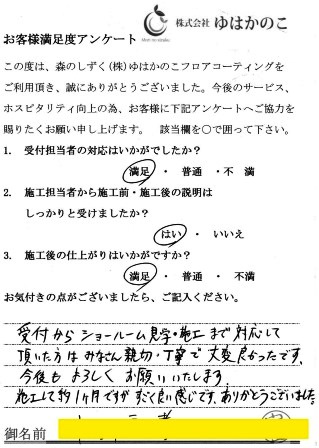 株式会社 ゆはかのこ
お客様満足度アンケート
この度は、森のしずく(株)ゆはかのこフロアコーティングを
ご利用頂き、誠にありがとうございました。今後のサービス、
ホスピタリティ向上の為、お客様に下記アンケートへご協力を
賜りたくお願い申し上げます。 該当欄を○で囲って下さい。
1. 受付担当者の対応はいかがでしたか?
満足 ・ 普通 ・不 満
2. 施工担当者から施工前・施工後の説明は
しっかりと受けましたか?
はい ・ いいえ
3. 施工後の仕上がりはいかがですか?
満足 ・ 普通 ・ 不満
お気付きの点がございましたら、ご記入ください。
受付からショールーム見学・施工まで対応して
頂いた方はみなさん親切・丁寧で大変良かったです。
今後もよろしくお願いいたします。
施工して約1ヶ月ですがすごく良い感じです。ありがとうございました。
御名前